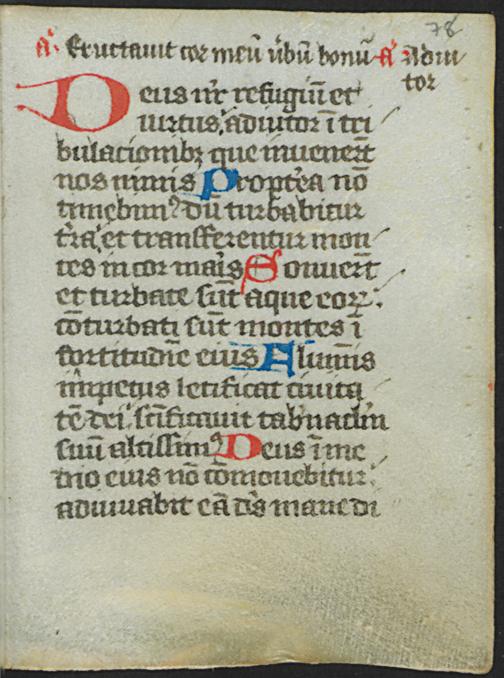 78
a᷑. Eructauit cor meū ūbū bonū a᷑ Adiu
tor
Deus nr̄ refugiū et
uirtus, adiutor ī tri
bulacionibꝫ que inuenert̄
nos nimis Propt̄ea nō
timebimꝰ dū turbabitur
t̄ra, et transferentur mon
tes in cor mar̄is Sonuert̄
et turbate sūt aque eoꝝ :
cōturbati sūt montes ī
fortitudīe eius Alumīs
īmpetus letificat ciuita
tē dei, sc̄ificauit tab̄nacl̄m
suū altissimꝰ Deus ī me
dio eius nō cōmouebitur :
adiuuabit eā ds̄ mane di